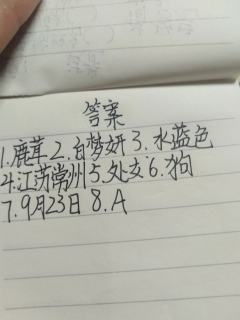 答案
1.鹿茸 2.白梦妍 3.水蓝色
4.江苏常州 5.处女 6.狗
7.9月23日 8.A